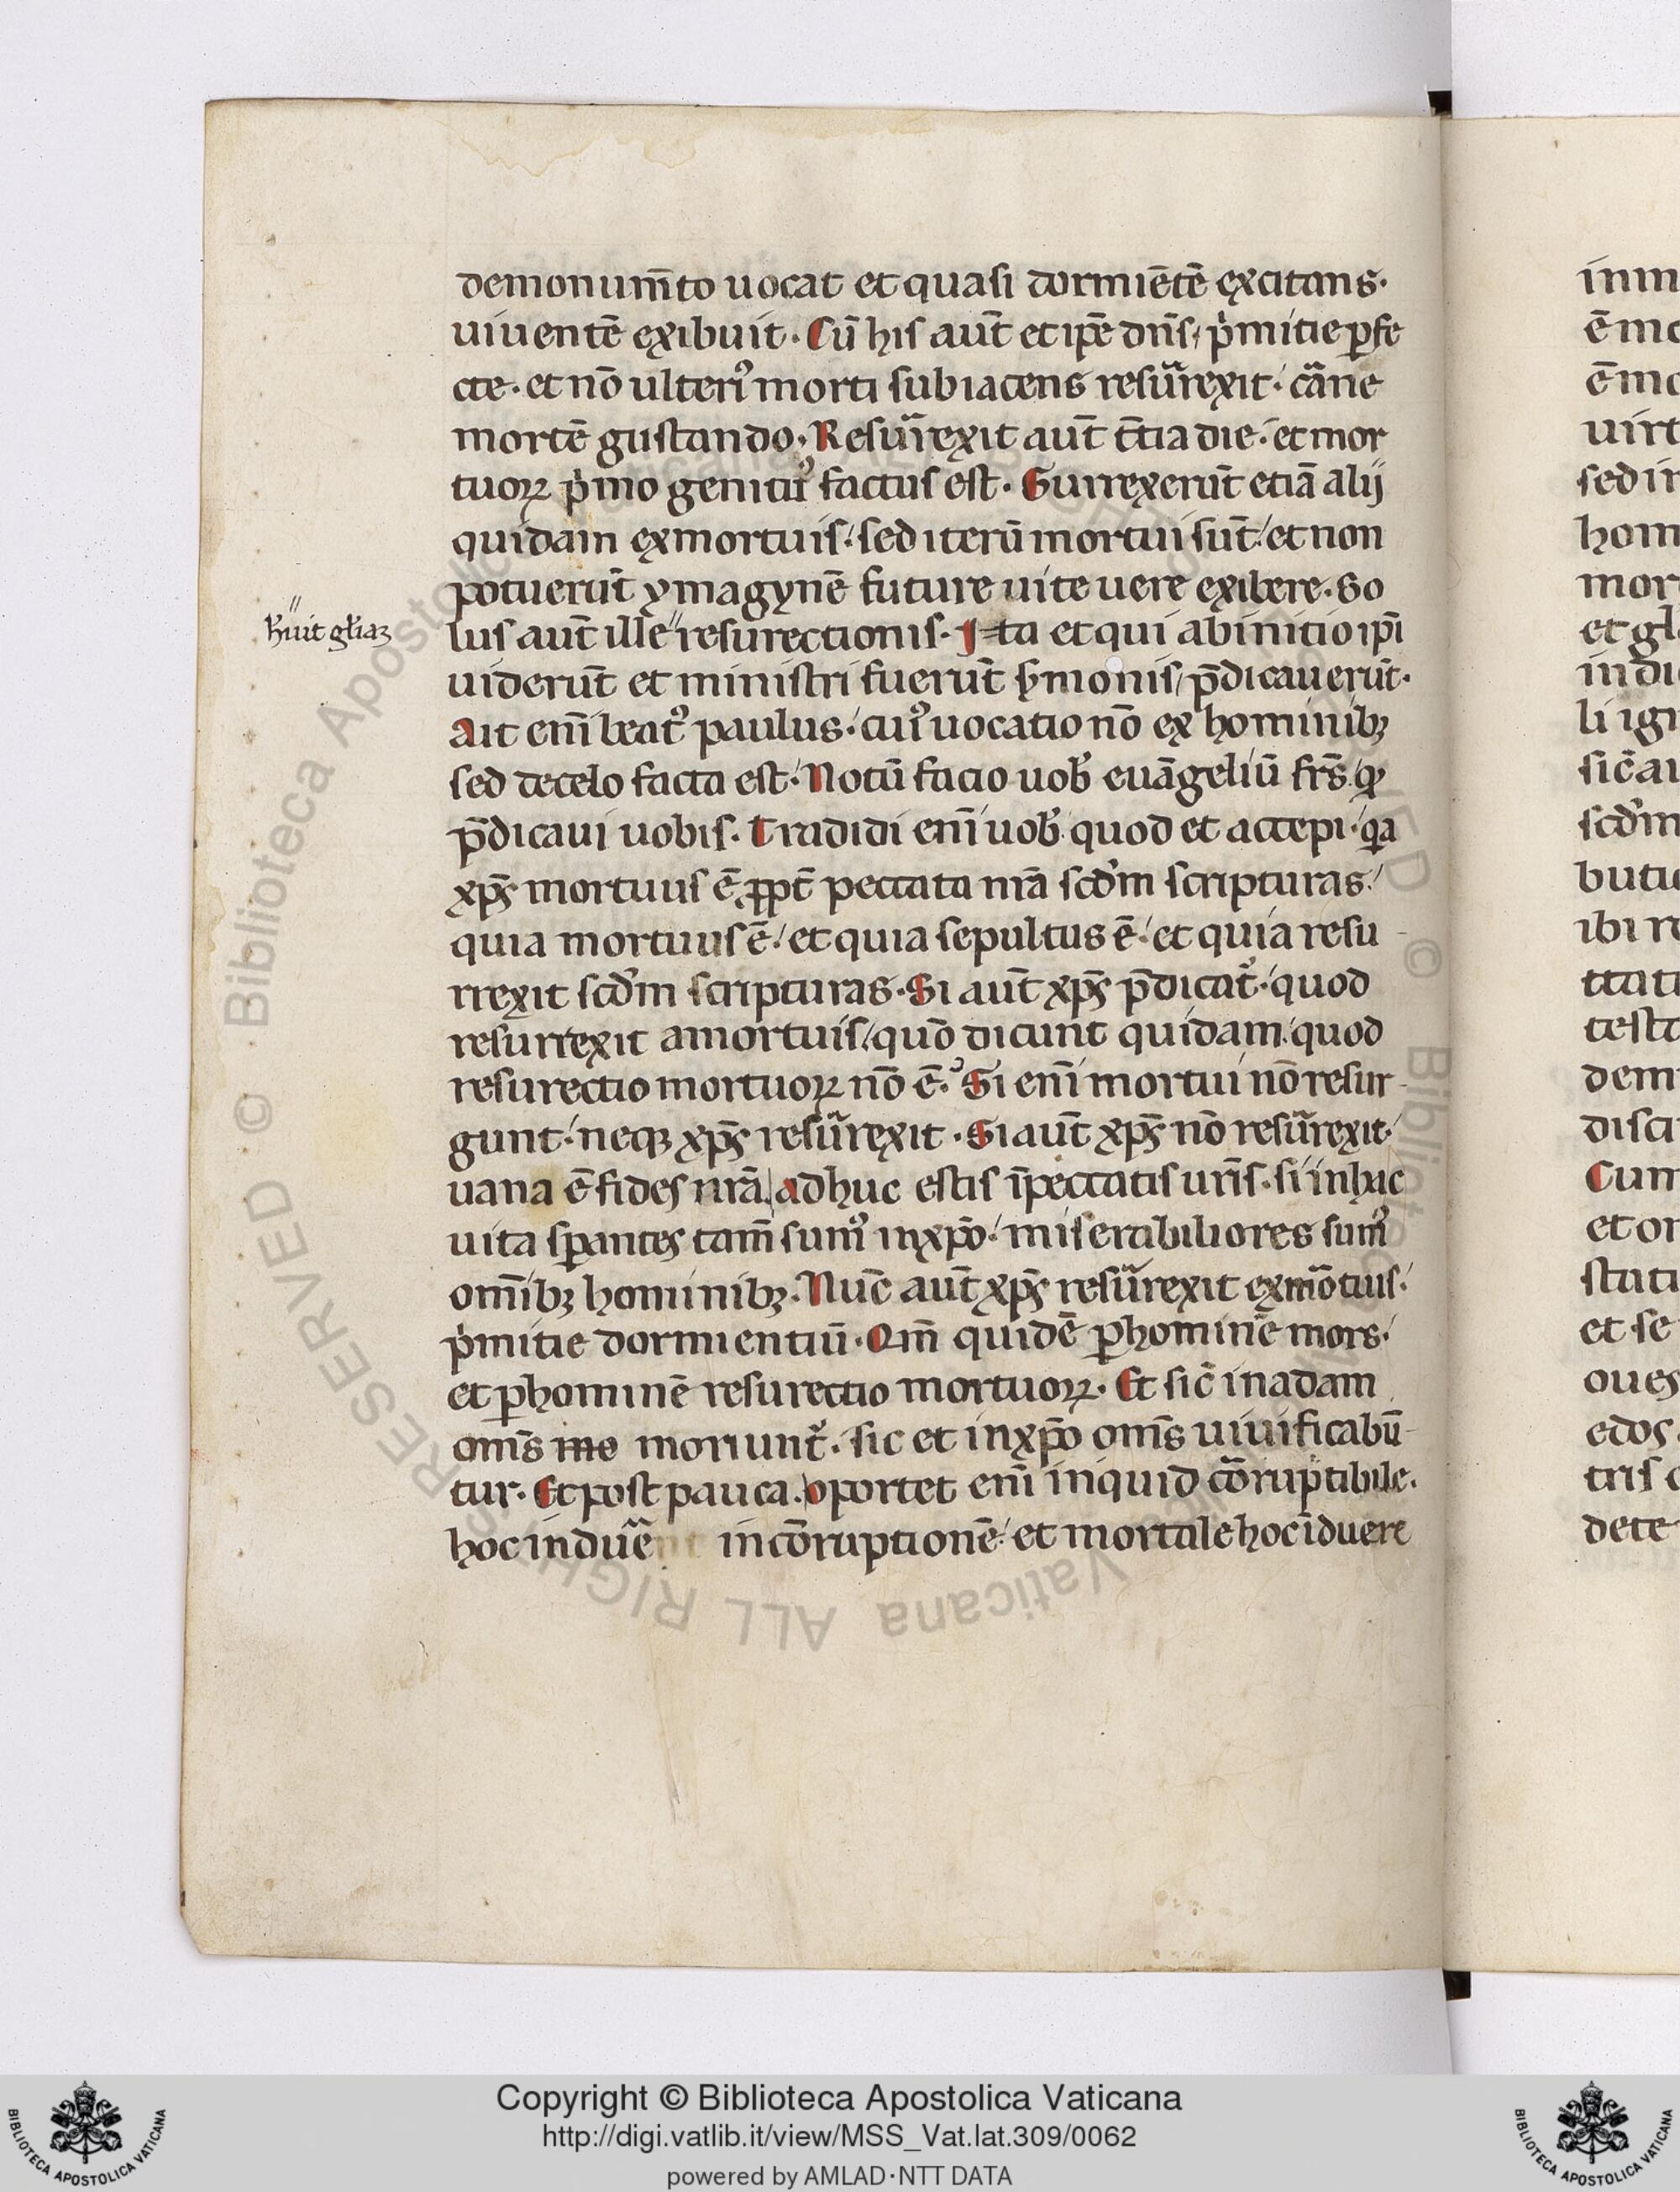 demonum̅to uocat et quasi dormie̅te̅ excitans·
uiuente̅ exibuit· Cu̅ his aut̅ et ip̅e dn̅s, p̍mitie ꝑfe
cte· et no̅ ulteriꝰ morti subiacens resur̃exit· car̃ne
morte̅ gustando· Resur̃exit aut̅ t̅tia die· et mor
tuoꝝ p̍mo genitꝰ factus est· Surrexeru̅t etia̅ alij
quidam ex mortuis· sed iteru̅ mortui su̅t· et non
potueru̅t ymagyne̅ future uite uere exibere· So
lus aut̅ ille" resurectionis· Ita et qui ab initio ip̅i
" h̅uit gl̅iaꝫ
uideru̅t et ministri fueru̅t s̍monis, p̅dicaueru̅t·
Ait eni̅ beatꝰ paulus· cuiꝰ uocatio no̅ ex hominibꝫ
sed de celo facta est· Notu̅ facio uob̅ eua̅geliu̅ fr̅s· qd̍
p̅dicaui uobis· Tradidi eni̅ uob̅ quod et accepi· qa
xp̅s mortuus e̅ ꝓpt̅ peccata nr̅a scd̅m scripturas·
quia mortuus e̅· et quia sepultus e̅· et quia resu
rrexit scd̅m scripturas· Si aut̅ xp̅s p̅dicat᷑· quod
resurrexit a mortuis, quo̅ dicunt quidam· quod
resurectio mortuoꝝ no̅ e̅· Si eni̅ mortui no̅ resur
gunt· neqꝫ xp̅s resur̃exit· Si aut̅ xp̅s no̅ resur̃exit·
uana e̅ fides nr̅a, adhuc estis i̅ peccatis ur̅is· si in hac
uita sꝑantes tam̅ sumꝰ in xp̅o· miserabiliores sumꝰ
om̅ibꝫ hominibꝫ· Nu̅c aut̅ xp̅s resur̃exit ex mo̅tuis·
p̍mitie dormientiu̅· Qm̅ quide̅ ꝑ homine̅ mors·
et ꝑ homine̅ resurectio mortuoꝝ· Et sic̅ in adam
om̅s mo moriunt᷑· sic et in xp̅o om̅s uiuificabu̅
tur· Et post pauca· oportet eni̅ inquid cor̃ruptibile·
hoc indue̅ incor̃ruptione̅· et mortale hoc i̅duere
inm
e̅ mo
e̅ mo
uirt
sed in
hom
mor
et gl
in di
li ign
sic̅ au
scd̅m
butu
ibi re
ttati
testa
dem
disci
Cum
et om
statu
et se
oues
edos
tris
dete
Copyright © Biblioteca Apostolica Vaticana
http://digi.vatlib.it/view/MSS_Vat.lat.309/0062
powered by AMLAD·NTT DATA
BIBLIOTECA APOSTOLICA VATICANA
BIBLIOTECA APOSTOLICA VATICANA